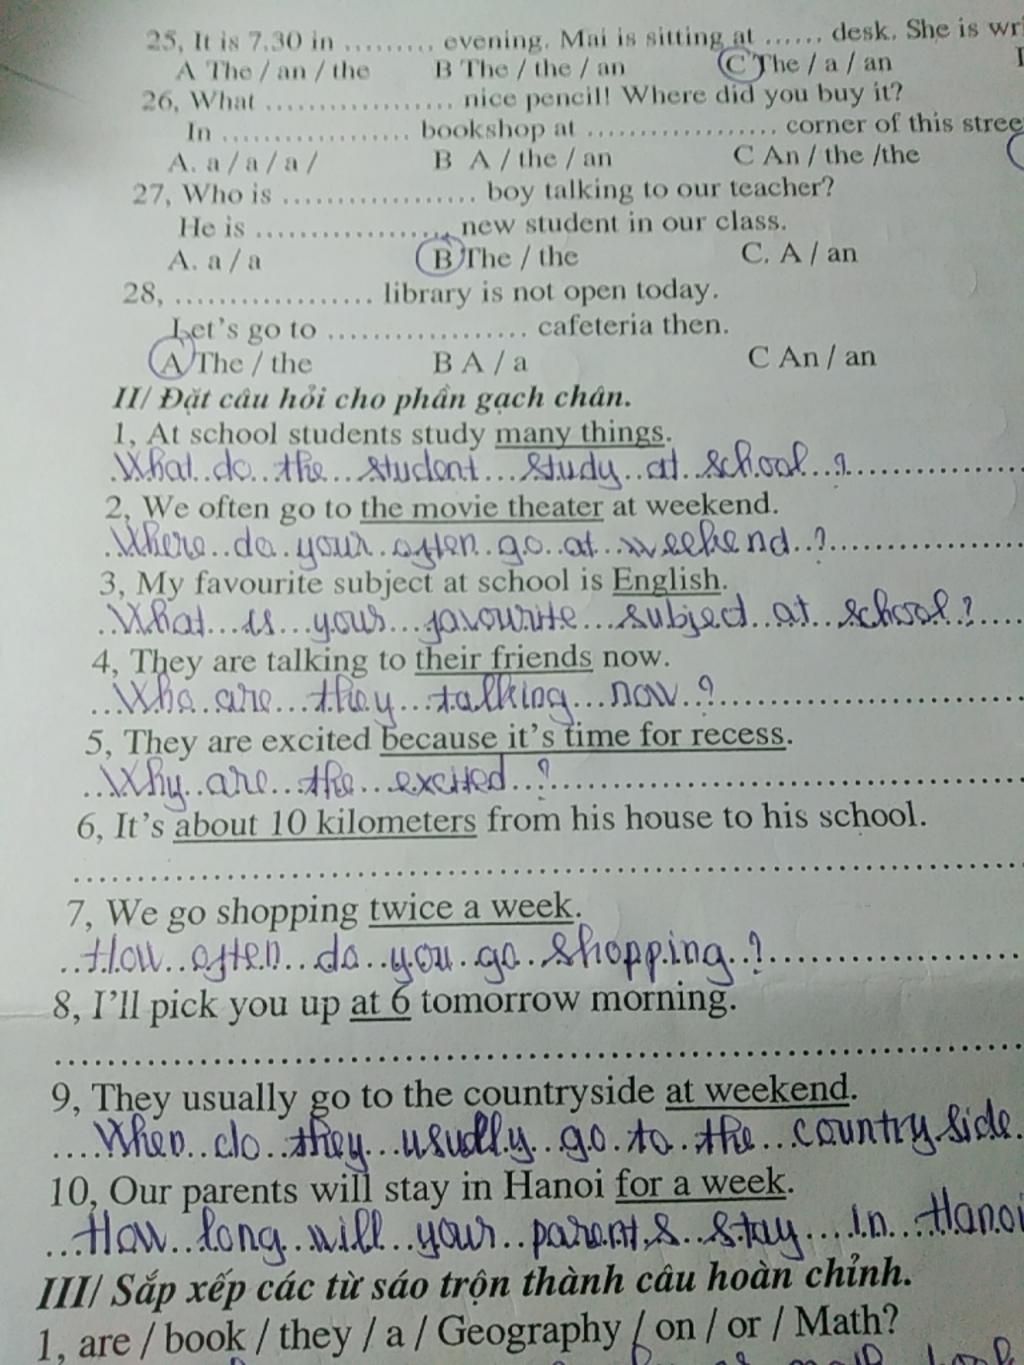 25, It is 7.30 in ......... evening. Mai is sitting at ...... desk. She is wr
A The / an / the B The / the / an C The / a / an
26, What .................. nice pencil! Where did you buy it?
In .................. bookshop at .................. corner of this stree
A. a / a / a / B A / the / an C An / the /the
27, Who is .................. boy talking to our teacher?
He is .................. new student in our class.
A. a / a B The / the C. A / an
28, .................. library is not open today.
Let's go to .................. cafeteria then.
A The / the B A / a C An / an
II/ Đặt câu hỏi cho phần gạch chân.
1, At school students study many things.
What do the student study at school ?
2, We often go to the movie theater at weekend.
Where do your often go at weekend ?
3, My favourite subject at school is English.
What is your favourite subject at school ?
4, They are talking to their friends now.
Who are they talking now ?
5, They are excited because it's time for recess.
Why are the excited ?
6, It's about 10 kilometers from his house to his school.
7, We go shopping twice a week.
How often do you go shopping ?
8, I'll pick you up at 6 tomorrow morning.
9, They usually go to the countryside at weekend.
When do they usually go to the country side.
10, Our parents will stay in Hanoi for a week.
How long will your parents stay in Hanoi
III/ Sắp xếp các từ sáo trộn thành câu hoàn chỉnh.
1, are / book / they / a / Geography / on / or / Math?